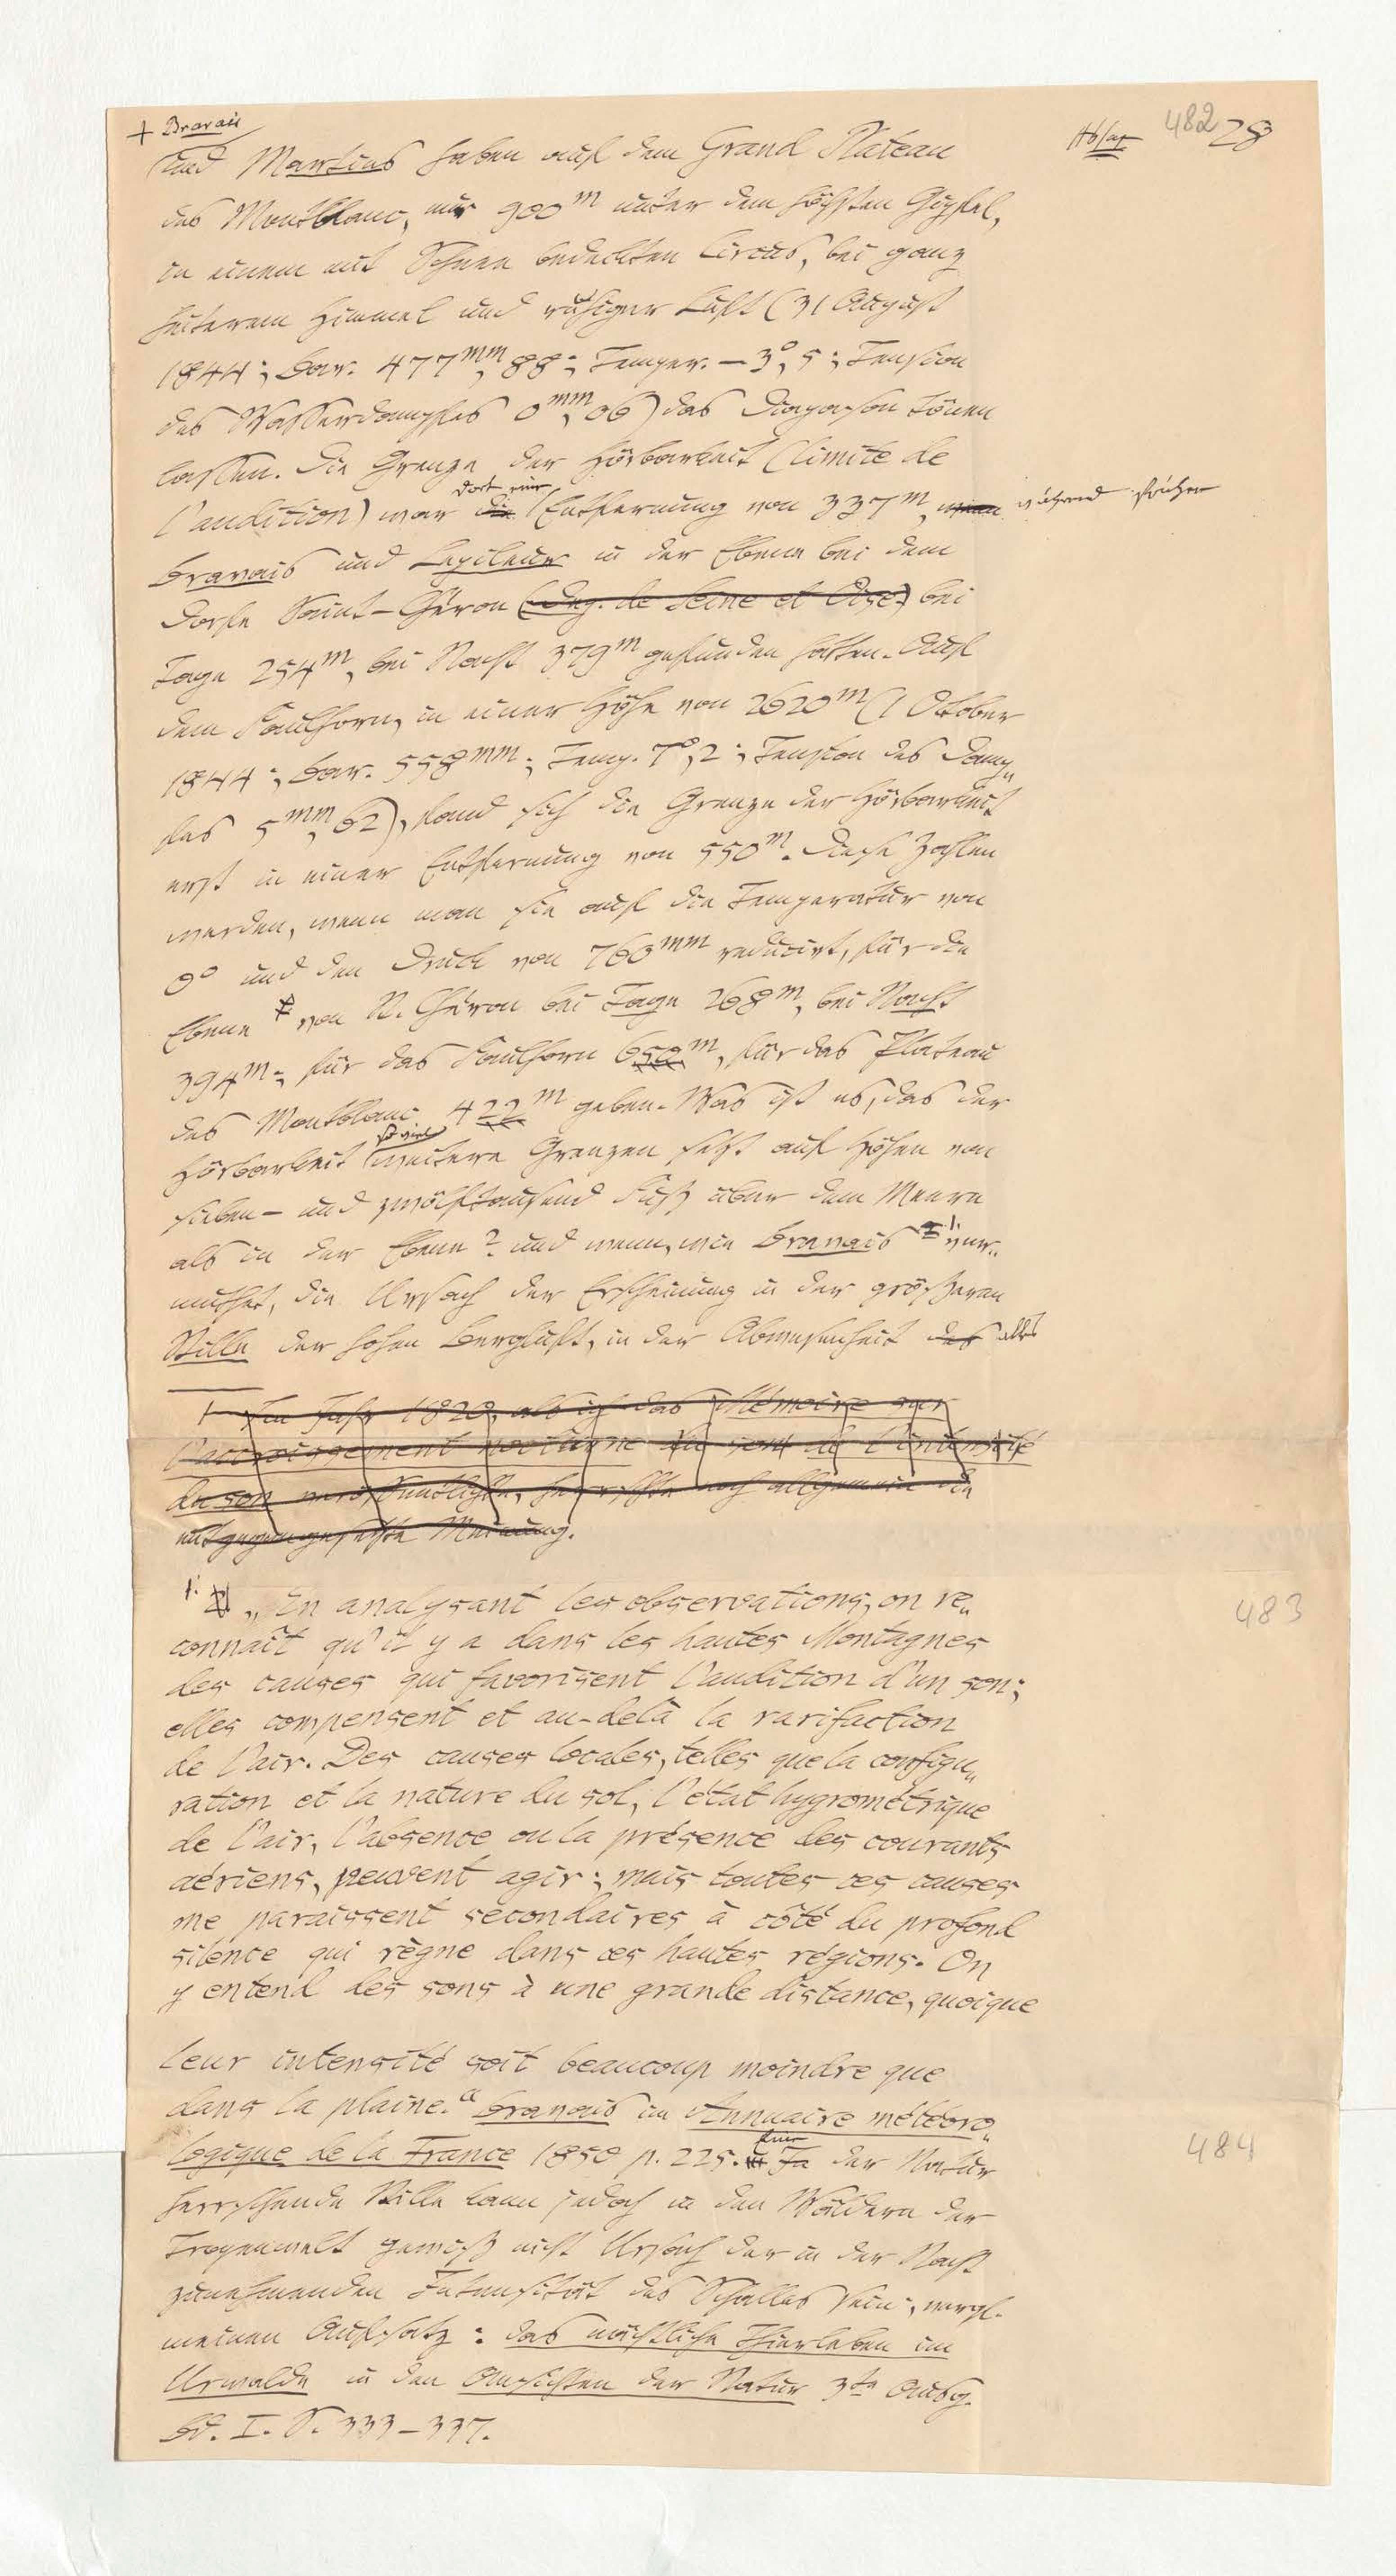 + Bravais
Absaz 482 28
und Martins haben auf dem Grand Plateau
des Montblanc, nur 900m unter dem höchsten Gipfel,
in einem mit Schnee bedeckten Circus, bei ganz
heiterem Himmel und ruhiger Luft (31 August
1844; Bar. 477mm,88; Temper. –3°,5; Tension
des Wasserdampfes 0mm,06) das Diapason tönen
lassen. Die Grenze der Hörbarkeit (limite de
l'audition) war die dort eine Entfernung von 337m, während früher
Bravais und Lepileur in der Ebene bei dem
Dorfe Saint-Chéron (Dep. de Seine et Oise) bei
Tage 254m, bei Nacht 379m gefunden hatten. Auf
dem Faulhorn, in einer Höhe von 2620m (1 October
1844; Bar. 558mm; Temp. 7°,2; Tension des Damp„
fes 5mm,62), fand sich die Grenze der Hörbarkeit
erst in einer Entfernung von 550m. Diese Zahlen
werden, wenn man sie auf die Temperatur von
0° und den Druck von 760mm reducirt, für die
Ebene von St. Chéron bei Tage 268m, bei Nacht
394m; für das Faulhorn 652m, für das Plateau
des Montblanc 422m geben. Was ist es, das der
Hörbarkeit so viel weitere Grenzen setzt auf Höhen von
sieben- und zwölftausend Fuß über dem Meere
als in der Ebene? und wenn, wie Bravais 1. ver„
muthet, die Ursach der Erscheinung in der größeren
Stille der hohen Bergluft, in der Abwesenheit des alles
+ Im Jahr 1820, als ich das Mémoire sur
l'accroissement nocturne du son de l'intensité
du son veröffentlichte, herrschte noch allgemein die
entgegengesetzte Meinung.
1. „En analysant les observations, on re„
483
connaît qu'il y a dans les hautes Montagnes
des causes qui favorisent l'audition d'un son;
elles compensent et au-delà la rarifaction
de l'air. Des causes locales, telles que la configu„
ration et la nature du sol, l'état hygrométrique
de l'air, l'absence ou la présence des courants
aériens, peuvent agir; mais toutes ces causes
me paraissent secondaires à côté du profond
silence qui règne dans ces hautes régions. On
y entend des sons à une grande distance, quoique
leur intensité soit beaucoup moindre que
dans la plaine." Bravais im Annuaire météoro„
484
logique de la France 1850 p. 225. In der Natur
herrschende Stille kann jedoch in den Wäldern der
Tropenwelt gewiß nicht Ursach der in der Nacht
zunehmenden Intensität des Schalles sein; vergl.
meinen Aufsatz: das nächtliche Thierleben im
Urwalde in den Ansichten der Natur 3te Ausg.
Bd. I. S. 333–337.